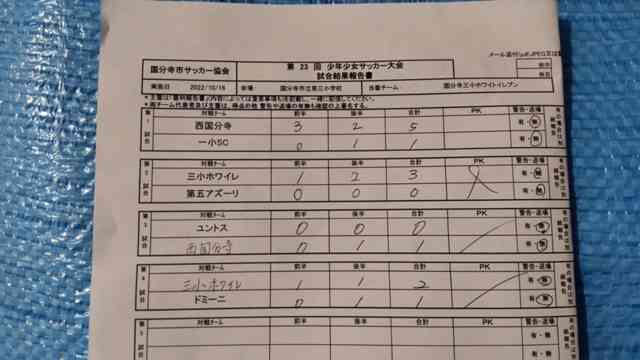 メール送付(pdf,JPEG又は
国分寺市サッカー協会
第 23 回 少年少女サッカー大会
試合結果報告書
実施日 2022/10/16 会場 国分寺市立第三小学校 当番チーム 国分寺三小ホワイトイレブン
第1試合 対戦チーム 前半 後半 合計 PK 警告・退場
西国分寺 3 2 5 有・無
一小SC 0 1 1 有・無
第2試合 対戦チーム 前半 後半 合計 PK 警告・退場
三小ホワイレ 1 2 3 有・無
第五アズーリ 0 0 0 有・無
第3試合 対戦チーム 前半 後半 合計 PK 警告・退場
ユントス 0 0 0 有・無
西国分寺 0 1 1 有・無
第4試合 対戦チーム 前半 後半 合計 PK 警告・退場
三小ホワイレ 1 1 2 有・無
ドミーニ 0 1 1 有・無
第5試合 対戦チーム 前半 後半 合計 PK 警告・退場
有・無